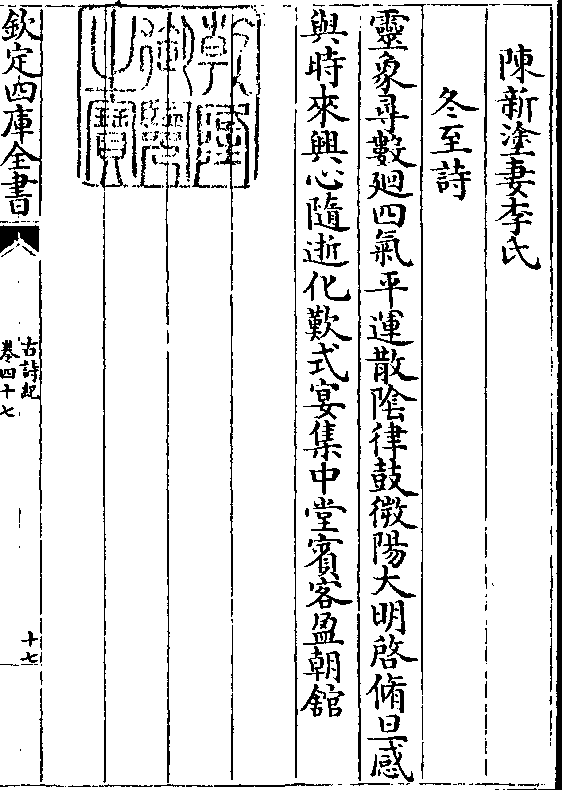 陳新塗妻李氏
冬至詩
靈象尋數廻四氣平運散陰律鼓微陽大明啓脩旦感
與時來興心隨逝化歎式宴集中堂賓客盈朝舘
乾隆御覽之寶
欽定四庫全書
古詩紀
卷四十七
十七